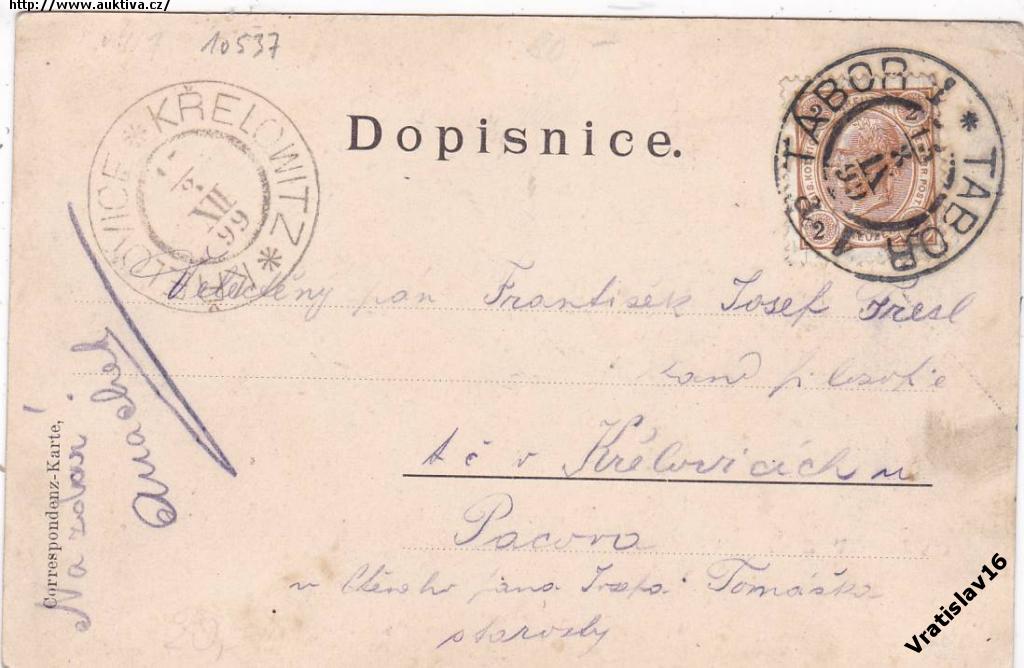 http://www.auktiva.cz/
10537
KŘELOWITZ * KŘELOVICE *
XII
99
Dopisnice.
TÁBOR 1 * TABOR 1 *
IX
99
2
Velectěný pán František Josef Fresl
kand filosofie
t č v Křelovicích u
Pacova
v Ctěného pána Josefa Tomáška
starosty
Correspondenz-Karte,
Na zdar!
Vratislav16